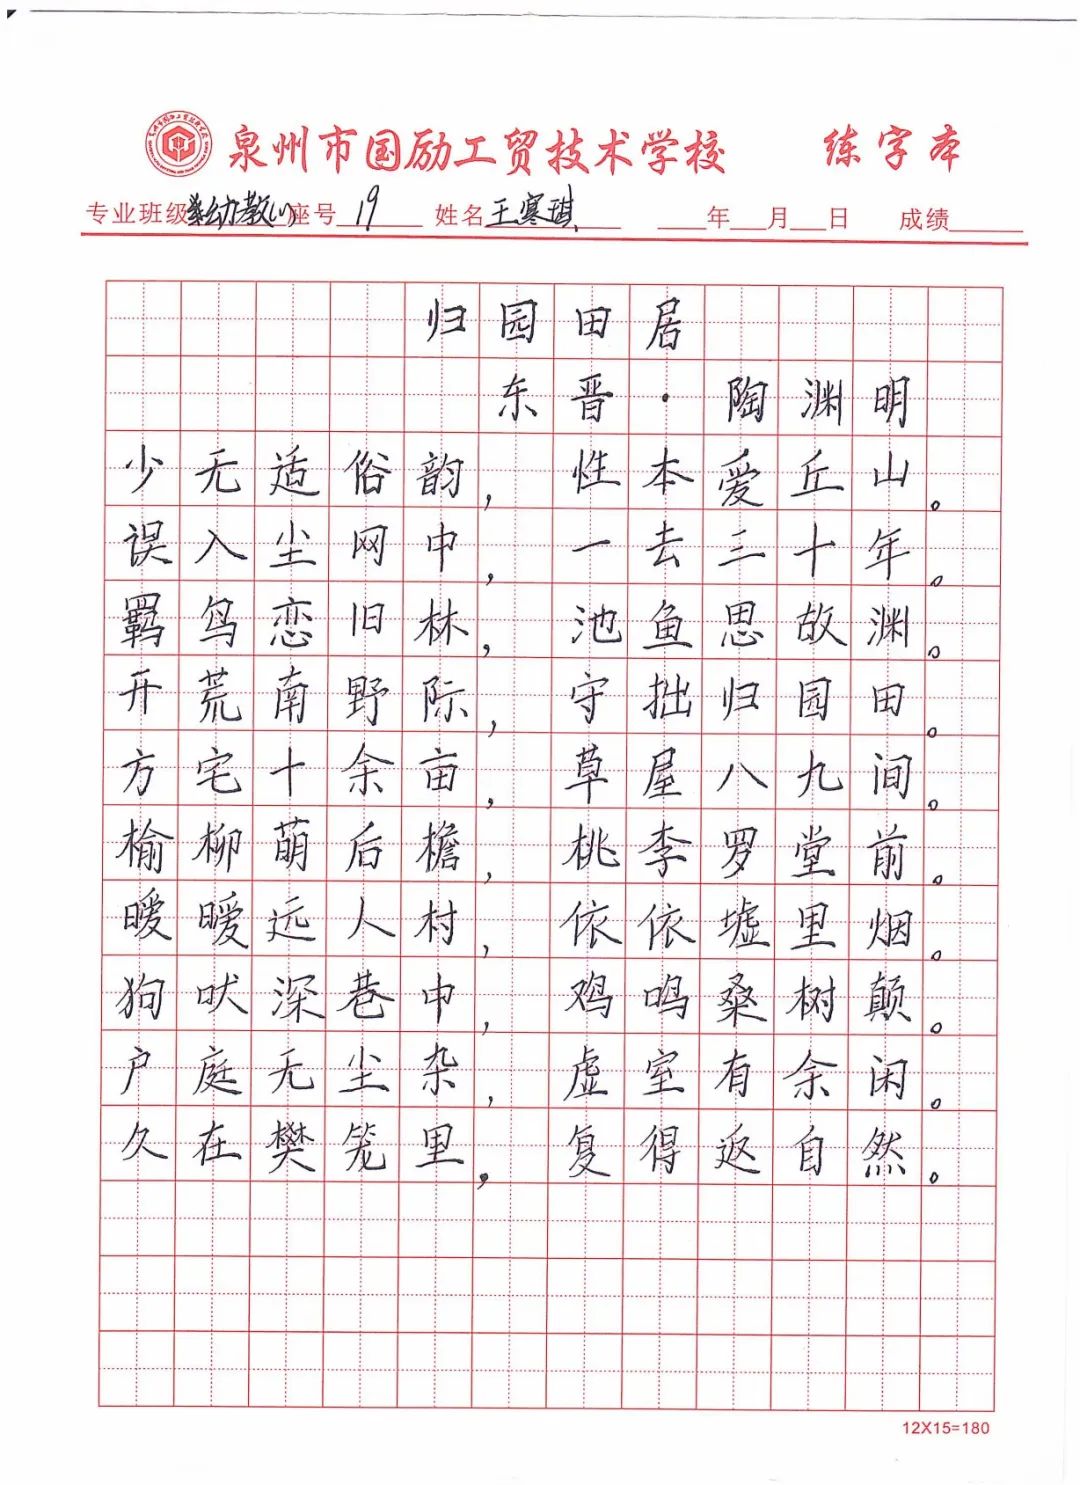 泉州市国励工贸技术学校 练字本
专业班级 幼教(1) 座号 19 姓名 王寒琪 年 月 日 成绩
归园田居
东晋·陶渊明
少无适俗韵，性本爱丘山。
误入尘网中，一去三十年。
羁鸟恋旧林，池鱼思故渊。
开荒南野际，守拙归园田。
方宅十余亩，草屋八九间。
榆柳萌后檐，桃李罗堂前。
暧暧远人村，依依墟里烟。
狗吠深巷中，鸡鸣桑树颠。
户庭无尘杂，虚室有余闲。
久在樊笼里，复得返自然。
12X15=180